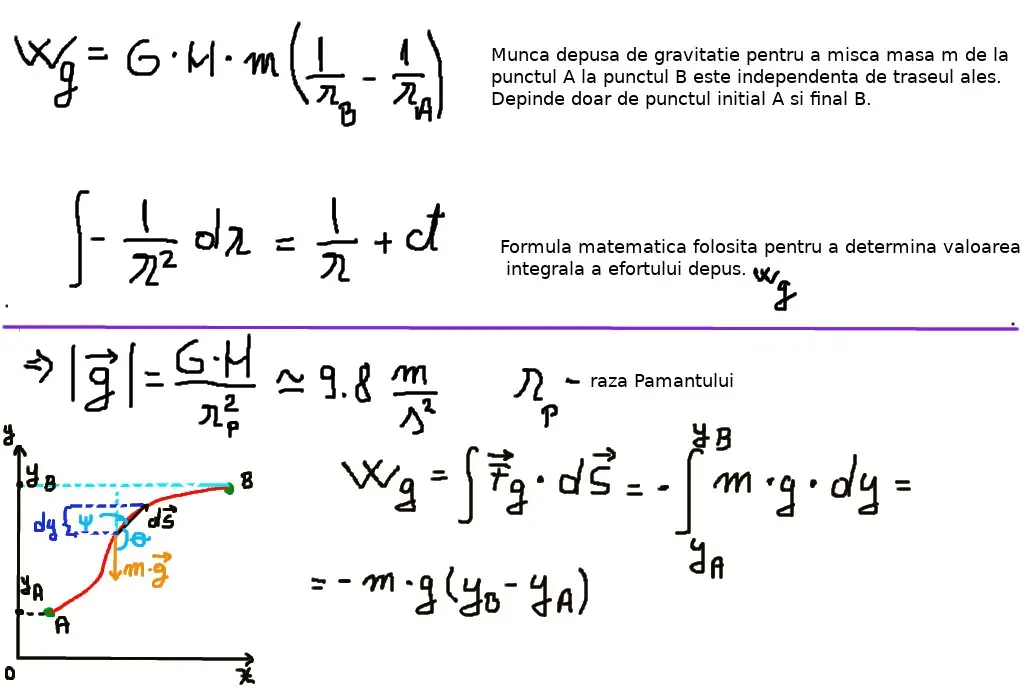 W_g = G · M · m (1/r_B - 1/r_A)
Munca depusa de gravitatie pentru a misca masa m de la
punctul A la punctul B este independenta de traseul ales.
Depinde doar de punctul initial A si final B.
∫ - 1/r² dr = 1/r + ct
Formula matematica folosita pentru a determina valoarea
integrala a efortului depus. W_g
⇒ |g⃗| = G·M / r_P² ≃ 9.8 m/s²
r_P - raza Pamantului
W_g = ∫ F⃗_g · dS⃗ = - ∫_{y_A}^{y_B} m · g · dy =
= - m · g (y_B - y_A)
y
y_B
B
dy
ψ
dS⃗
θ
m·g⃗
y_A
A
O
x